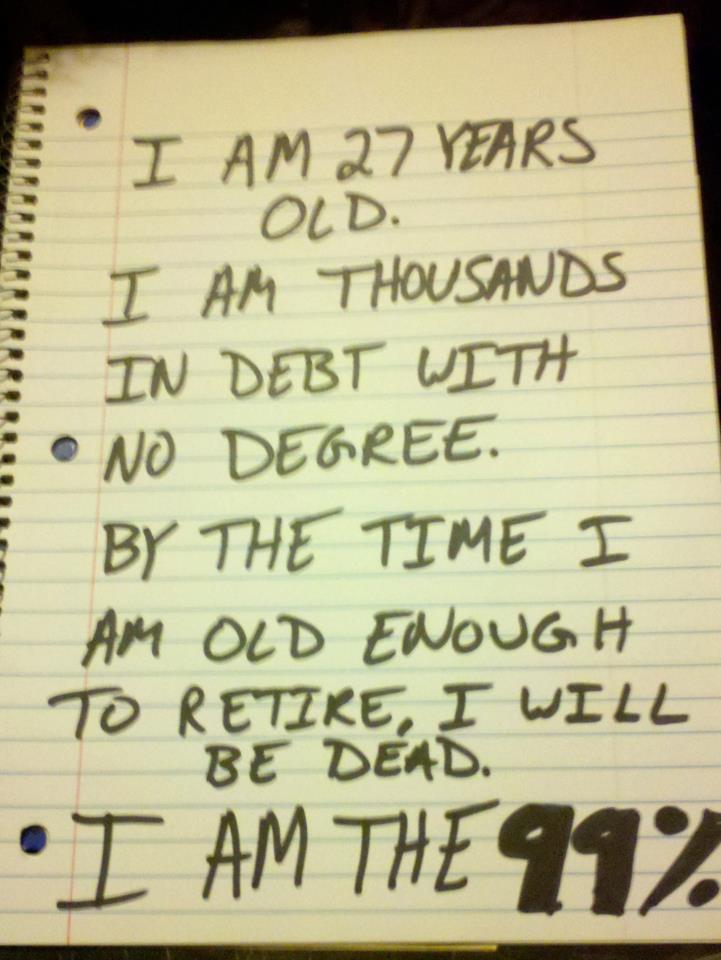 I AM 27 YEARS
OLD.
I AM THOUSANDS
IN DEBT WITH
NO DEGREE.
BY THE TIME I
AM OLD ENOUGH
TO RETIRE, I WILL
BE DEAD.
I AM THE 99%